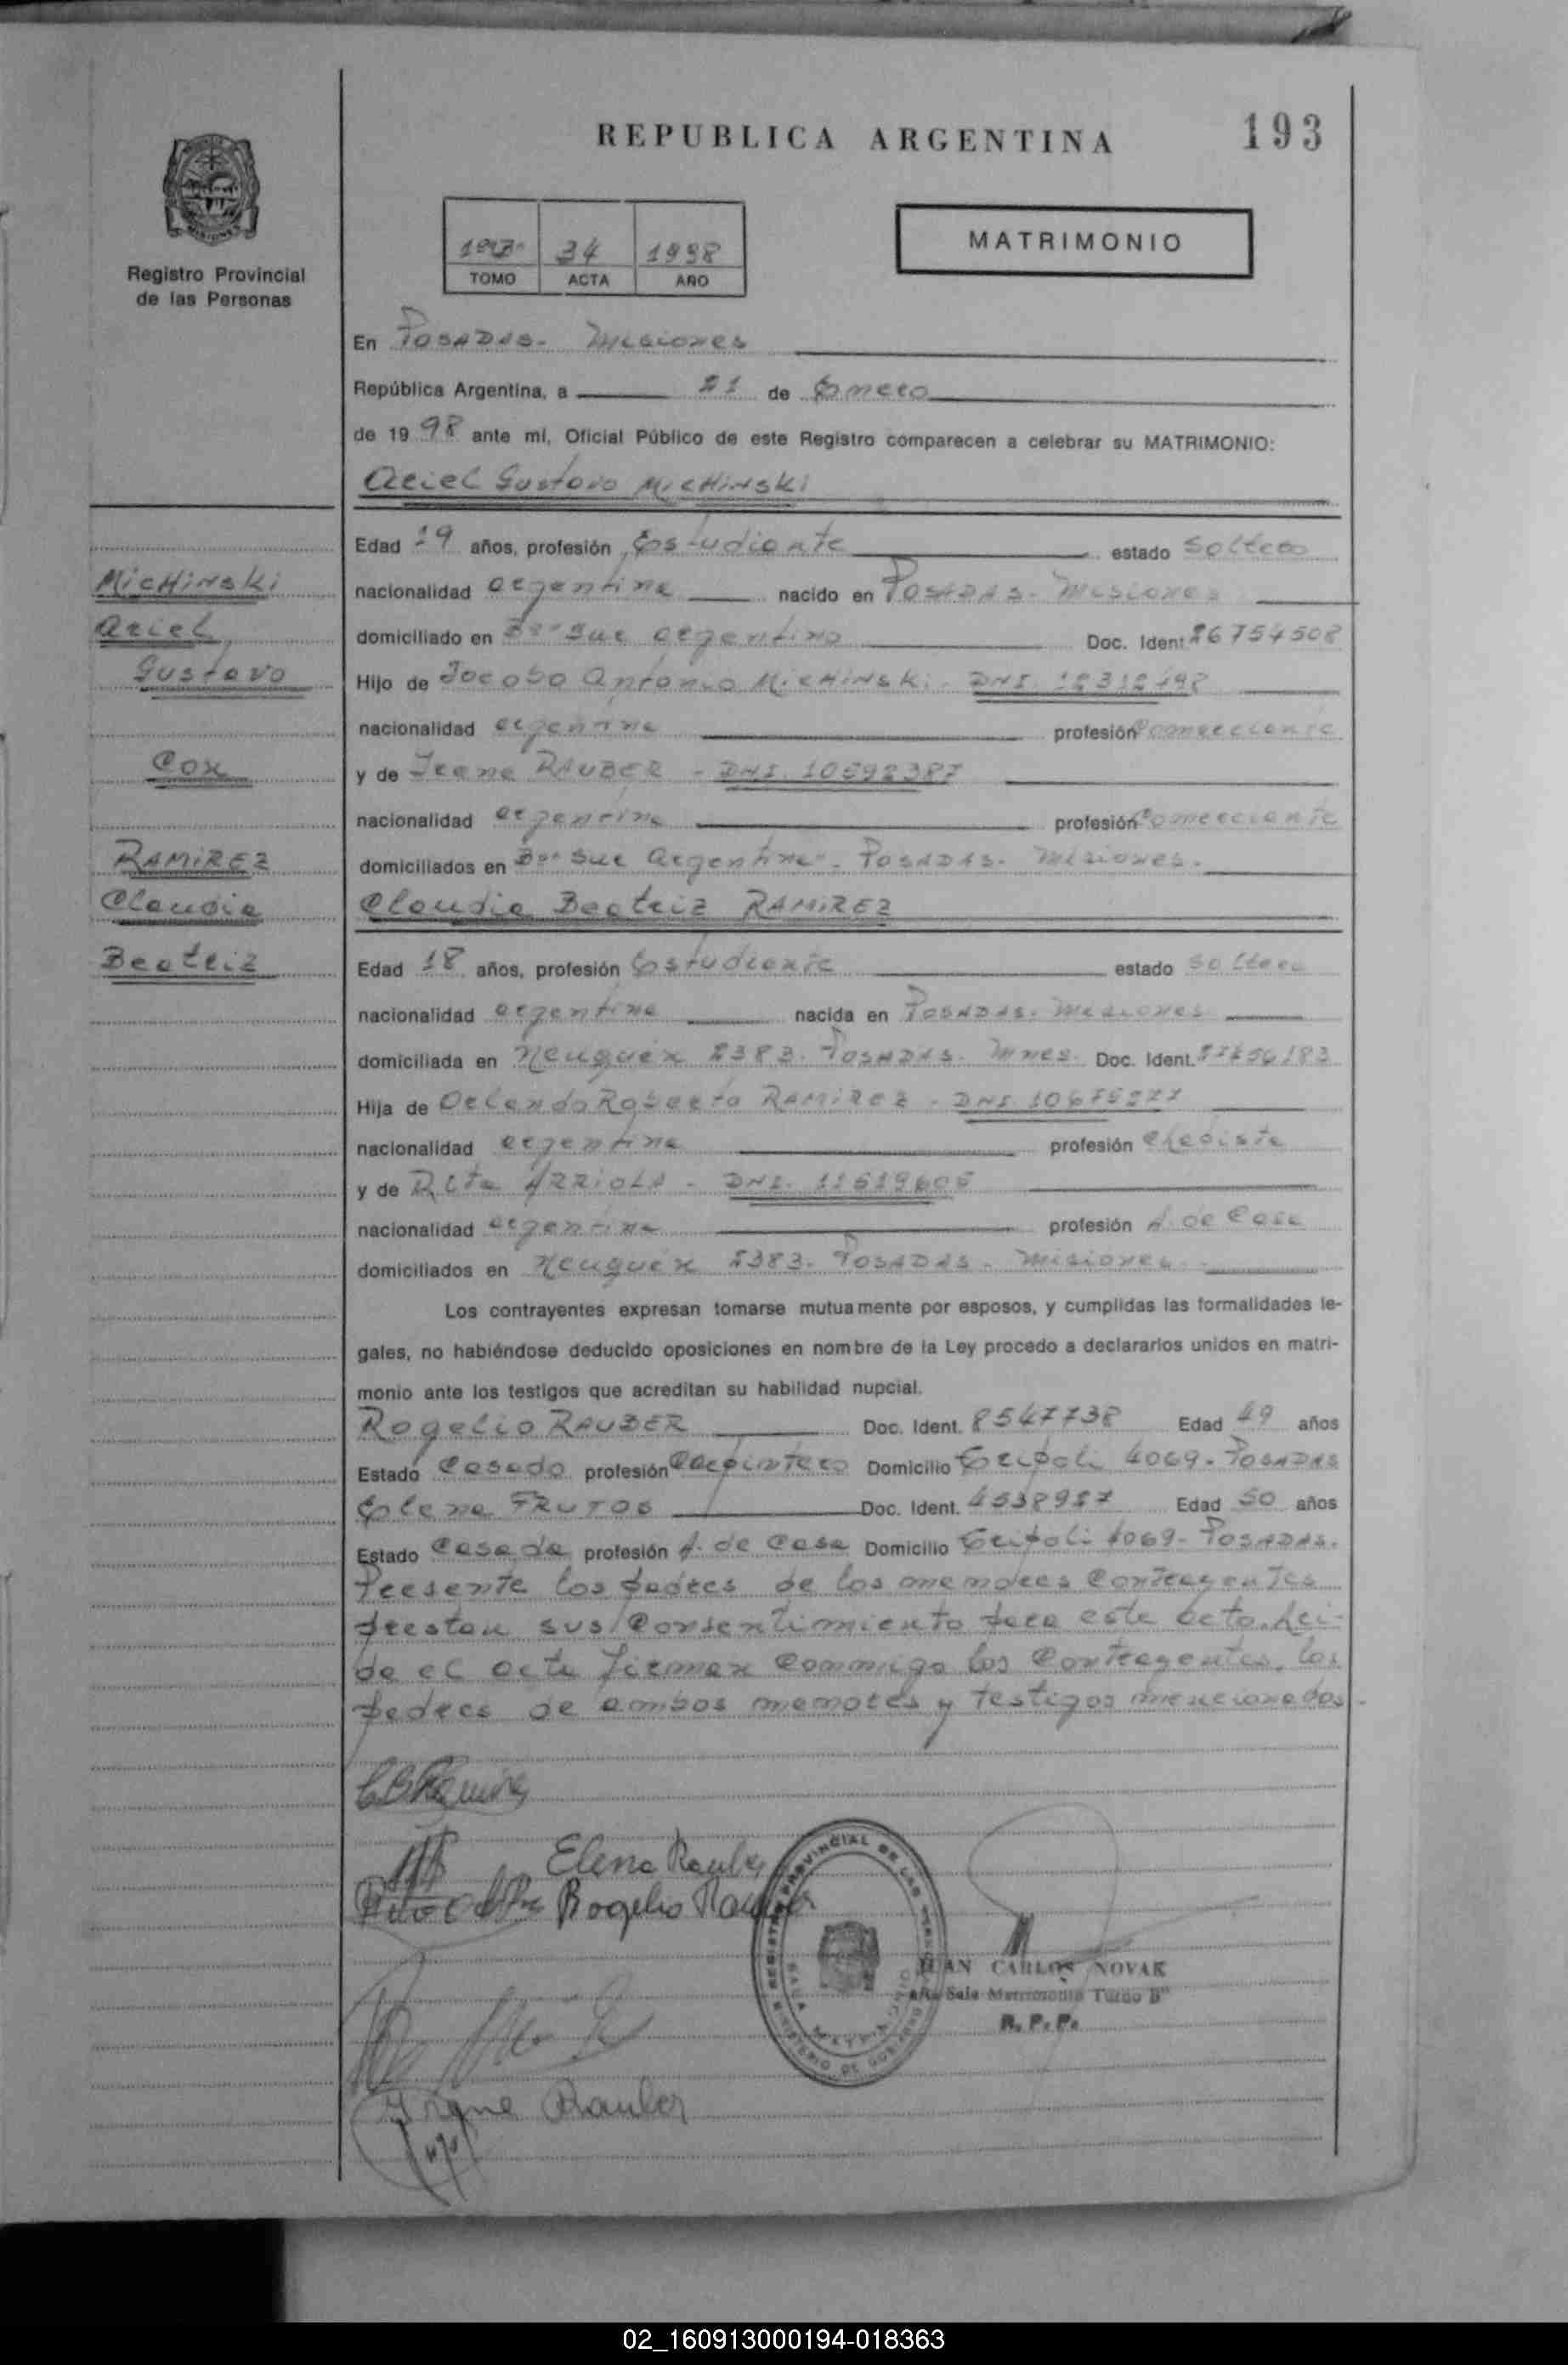 REPUBLICA ARGENTINA
193
Registro Provincial
de las Personas
34 1998
TOMO ACTA AÑO
MATRIMONIO
En POSADAS- Misiones
República Argentina, a 21 de Enero
de 19 98 ante mí, Oficial Público de este Registro comparecen a celebrar su MATRIMONIO:
Ariel Gustavo MicHiNski
MicHiNski
Ariel
Gustavo
Con
RAMIREZ
Claudia
Beatriz
Edad 19 años, profesión Estudiante estado Soltero
nacionalidad argentina nacido en POSADAS- Misiones
domiciliado en Bº Sur argentino Doc. Ident 26754508
Hijo de Jacobo Antonio MicHiNski- DNI.
nacionalidad argentina profesión Comerciante
y de Irene RAUBER - DNI. 10592387
nacionalidad argentina profesión Comerciante
domiciliados en Bº Sur Argentino- POSADAS- Misiones.
Claudia Beatriz RAMIREZ
Edad 18 años, profesión Estudiante estado Soltera
nacionalidad argentina nacida en POSADAS- Misiones
domiciliada en Neuquén 2383- POSADAS- Mnes- Doc. Ident.
Hija de Orlando Roberto RAMIREZ - DNI
nacionalidad argentina profesión Chapista
y de Rita ARRIOLA - DNI. 11619605
nacionalidad argentina profesión A. de Casa
domiciliados en Neuquén 2383- POSADAS- Misiones-
Los contrayentes expresan tomarse mutuamente por esposos, y cumplidas las formalidades le-
gales, no habiéndose deducido oposiciones en nombre de la Ley procedo a declararlos unidos en matri-
monio ante los testigos que acreditan su habilidad nupcial.
Rogelio RAUBER Doc. Ident. 8547738 Edad 49 años
Estado Casado profesión Carpintero Domicilio Trípoli 4069- POSADAS
Elena FRUTOS Doc. Ident. 4538957 Edad 50 años
Estado Casada profesión A. de Casa Domicilio Trípoli 4069- POSADAS-
Presente los padres de los menores Contrayentes
prestan sus Consentimiento para este acto. Lei-
da el acta firman Conmigo los Contrayentes, los
padres de ambos menores y testigos mencionados-
C B Ramírez
Elena Rauber
Rogelio Rauber
JUAN CARLOS NOVAK
Sala Matrimonio Turno B"
R. P. P.
Irene Rauber
02_160913000194-018363